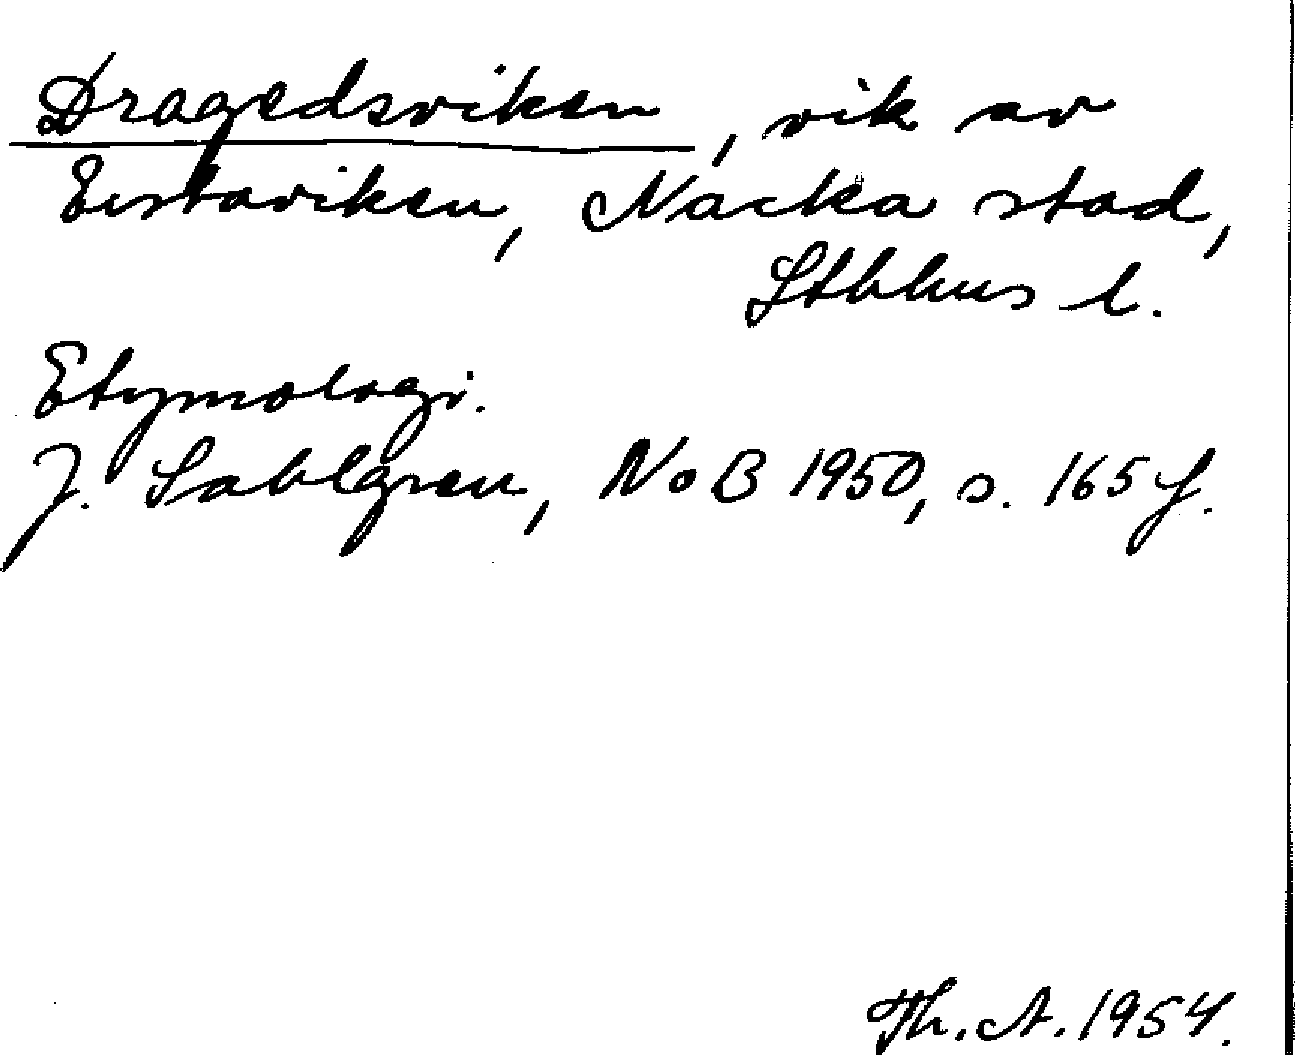 Dragedsviken, vik av
Erstaviken, Nacka stad,
Sthhus l.
Etymologi.
J. Sahlgren, NoB 1950, s. 165 f.
Th. A. 1954.